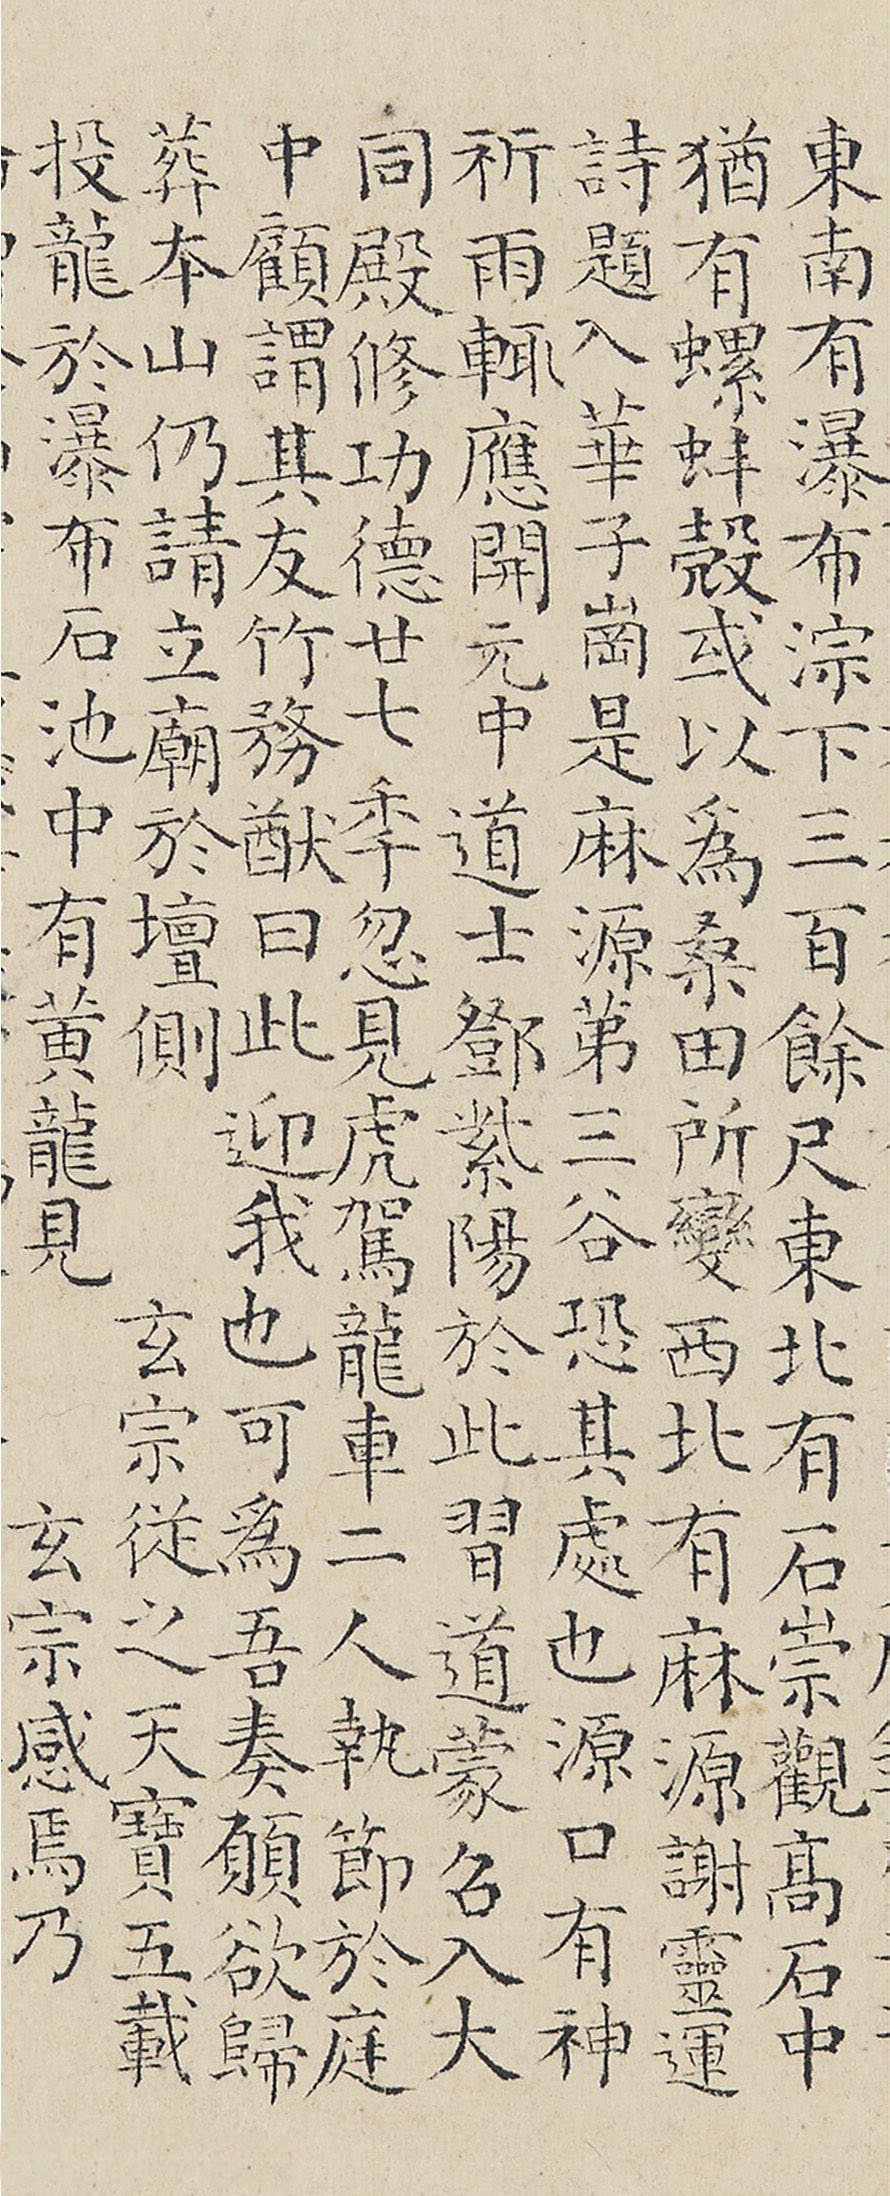 東南有瀑布淙下三百餘尺東北有石崇觀高石中
猶有螺蚌殼或以為桑田所變西北有麻源謝靈運
詩題入華子崗是麻源第三谷恐其處也源口有神
祈雨輒應開元中道士鄧紫陽於此習道蒙召入大
同殿修功德廿七季忽見虎駕龍車二人執節於庭
中顧謂其友竹務猷曰此迎我也可為吾奏願欲歸
葬本山仍請立廟於壇側　玄宗從之天寶五載
投龍於瀑布石池中有黃龍見　玄宗感焉乃